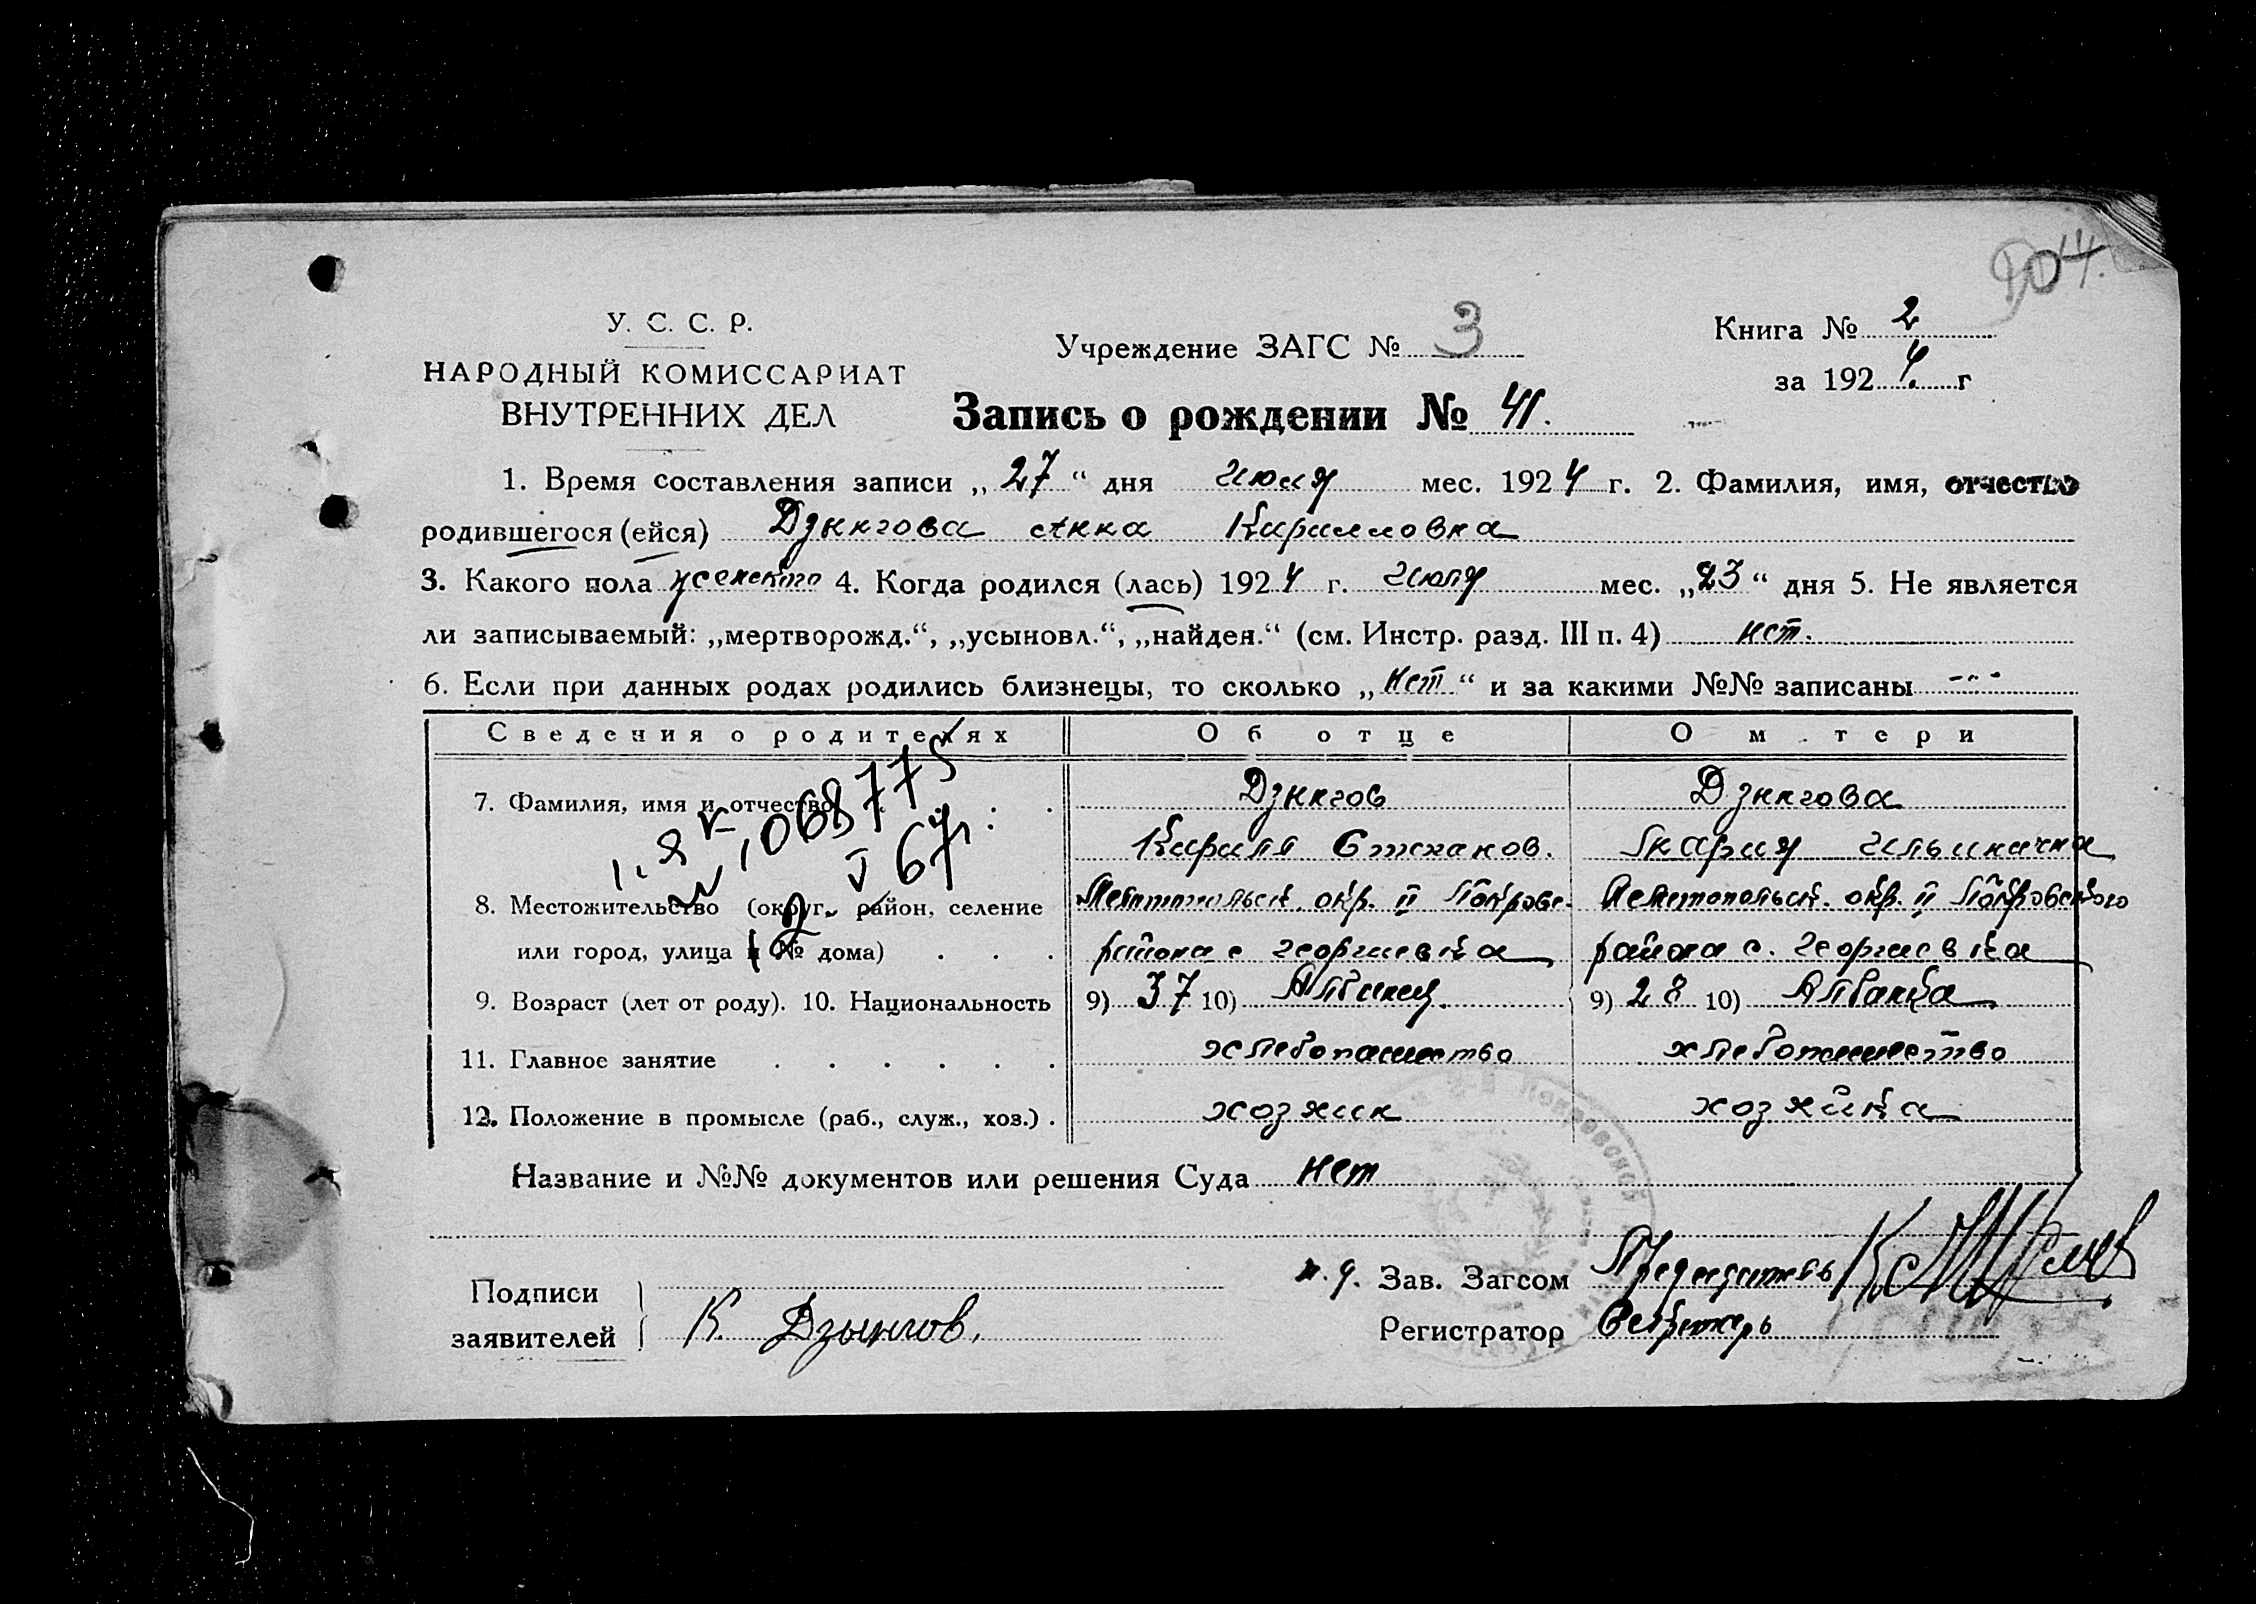 204.
У. С. С. Р.
НАРОДНЫЙ КОМИССАРИАТ
ВНУТРЕННИХ ДЕЛ
Учреждение ЗАГС № 3
Книга № 2
за 1924 г
Запись о рождении № 41.
1. Время составления записи „27“ дня июля мес. 1924 г. 2. Фамилия, имя, отчество
родившегося (ейся) Дзынгова Анна Кирилловна
3. Какого пола женского 4. Когда родился (лась) 1924 г. июля мес. „23“ дня 5. Не является
ли записываемый: „мертворожд.“, „усыновл.“, „найден.“ (см. Инстр. разд. III п. 4) нет.
6. Если при данных родах родились близнецы, то сколько „нет“ и за какими №№ записаны ---
Сведения о родителях Об отце О матери
7. Фамилия, имя и отчество Дзынгов Дзынгова
Кирилл Степанов. Мария Ильинична
8. Местожительство (округ, район, селение Мелитопольск. окр. II Покровс. Мелитопольск. окр. II Покровского
или город, улица и № дома) района с Георгиевка района с. Георгиевка
9. Возраст (лет от роду). 10. Национальность 9) 37 10) Албанец. 9) 28 10) Албанка
11. Главное занятие хлебопашество хлебопашество
12. Положение в промысле (раб., служ., хоз.) хозяин хозяйка
068775
67г.
Название и №№ документов или решения Суда нет
Подписи
заявителей К. Дзынгов.
и. д. Зав. Загсом Председатель
Регистратор Секретарь